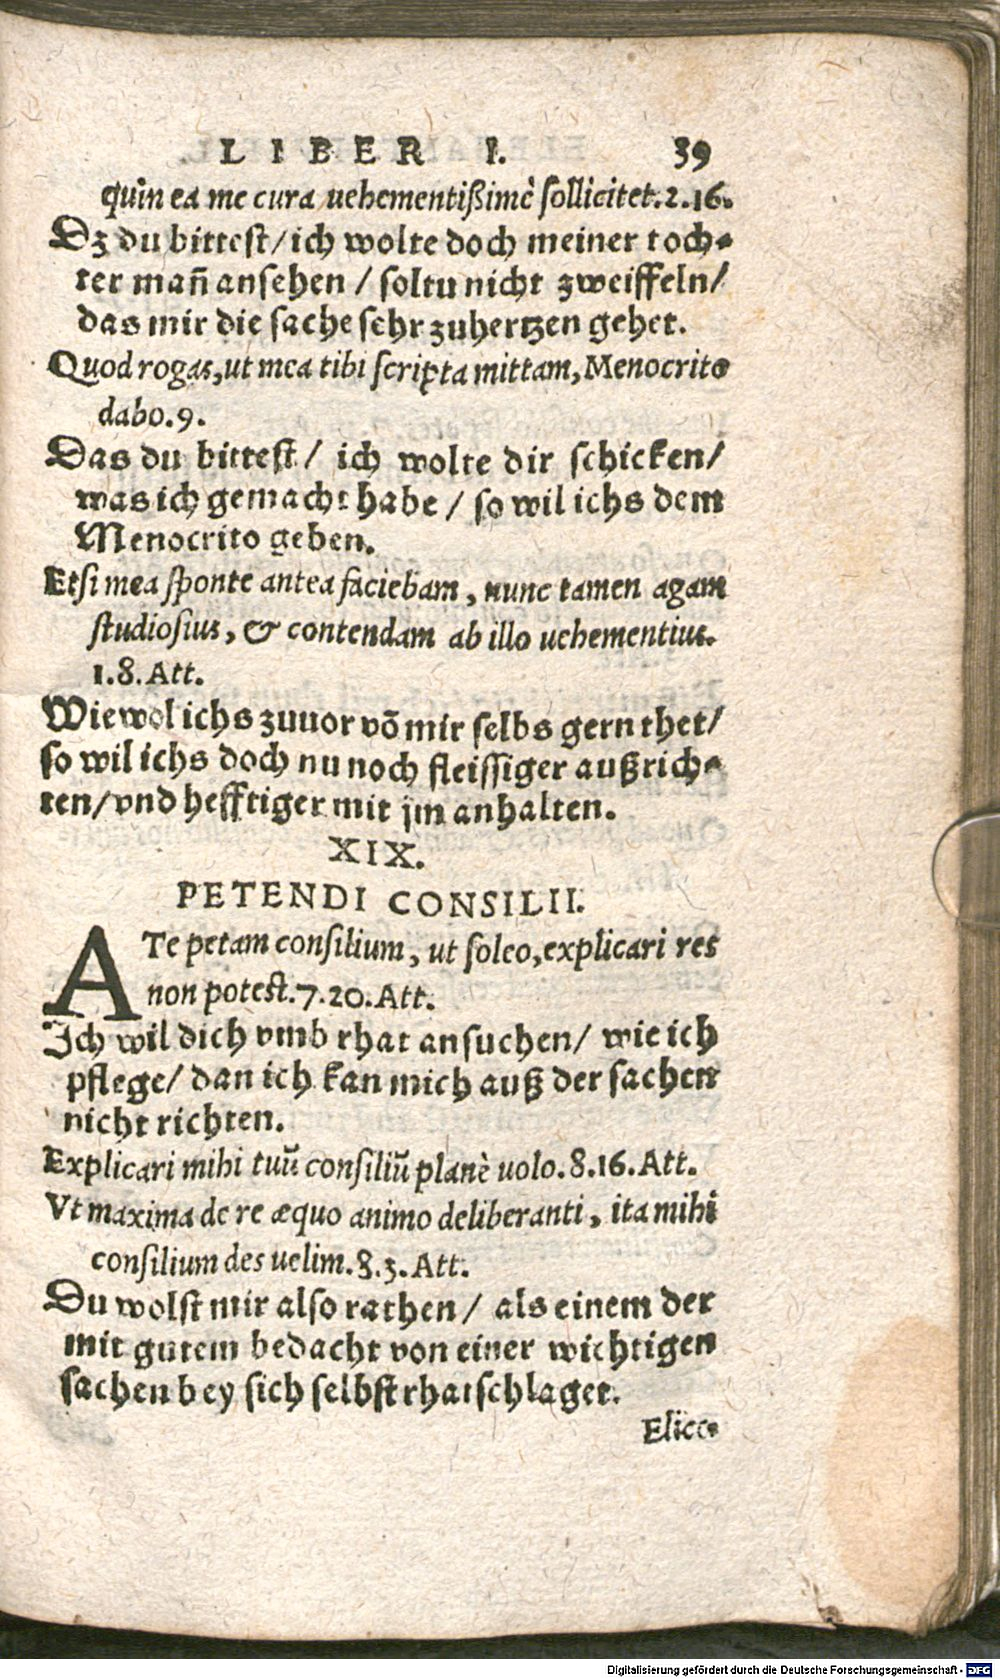 LIBER I. 39
quin ea me cura uehementißimè sollicitet. 2. 16.
Dz du bittest/ ich wolte doch meiner toch-
ter mañ ansehen / soltu nicht zweiffeln/
das mir die sache sehr zuhertzen gehet.
Quod rogas, ut mea tibi scripta mittam, Menocrito
dabo. 9.
Das du bittest/ ich wolte dir schicken/
was ich gemacht habe / so wil ichs dem
Menocrito geben.
Etsi mea sponte antea faciebam, nunc tamen agam
studiosius, & contendam ab illo uehementius.
1. 8. Att.
Wiewol ichs zuuor võ mir selbs gern thet/
so wil ichs doch nu noch fleissiger außrich-
ten/ vnd hefftiger mit jm anhalten.
XIX.
PETENDI CONSILII.
A Te petam consilium, ut soleo, explicari res
non potest. 7. 20. Att.
Ich wil dich vmb rhat ansuchen/ wie ich
pflege/ dan ich kan mich auß der sachen
nicht richten.
Explicari mihi tuũ consiliũ planè uolo. 8. 16. Att.
Vt maxima de re æquo animo deliberanti, ita mihi
consilium des uelim. 8. 3. Att.
Du wolst mir also rathen/ als einem der
mit gutem bedacht von einer wichtigen
sachen bey sich selbst rhatschlaget.
Elice-
Digitalisierung gefördert durch die Deutsche Forschungsgemeinschaft - DFG